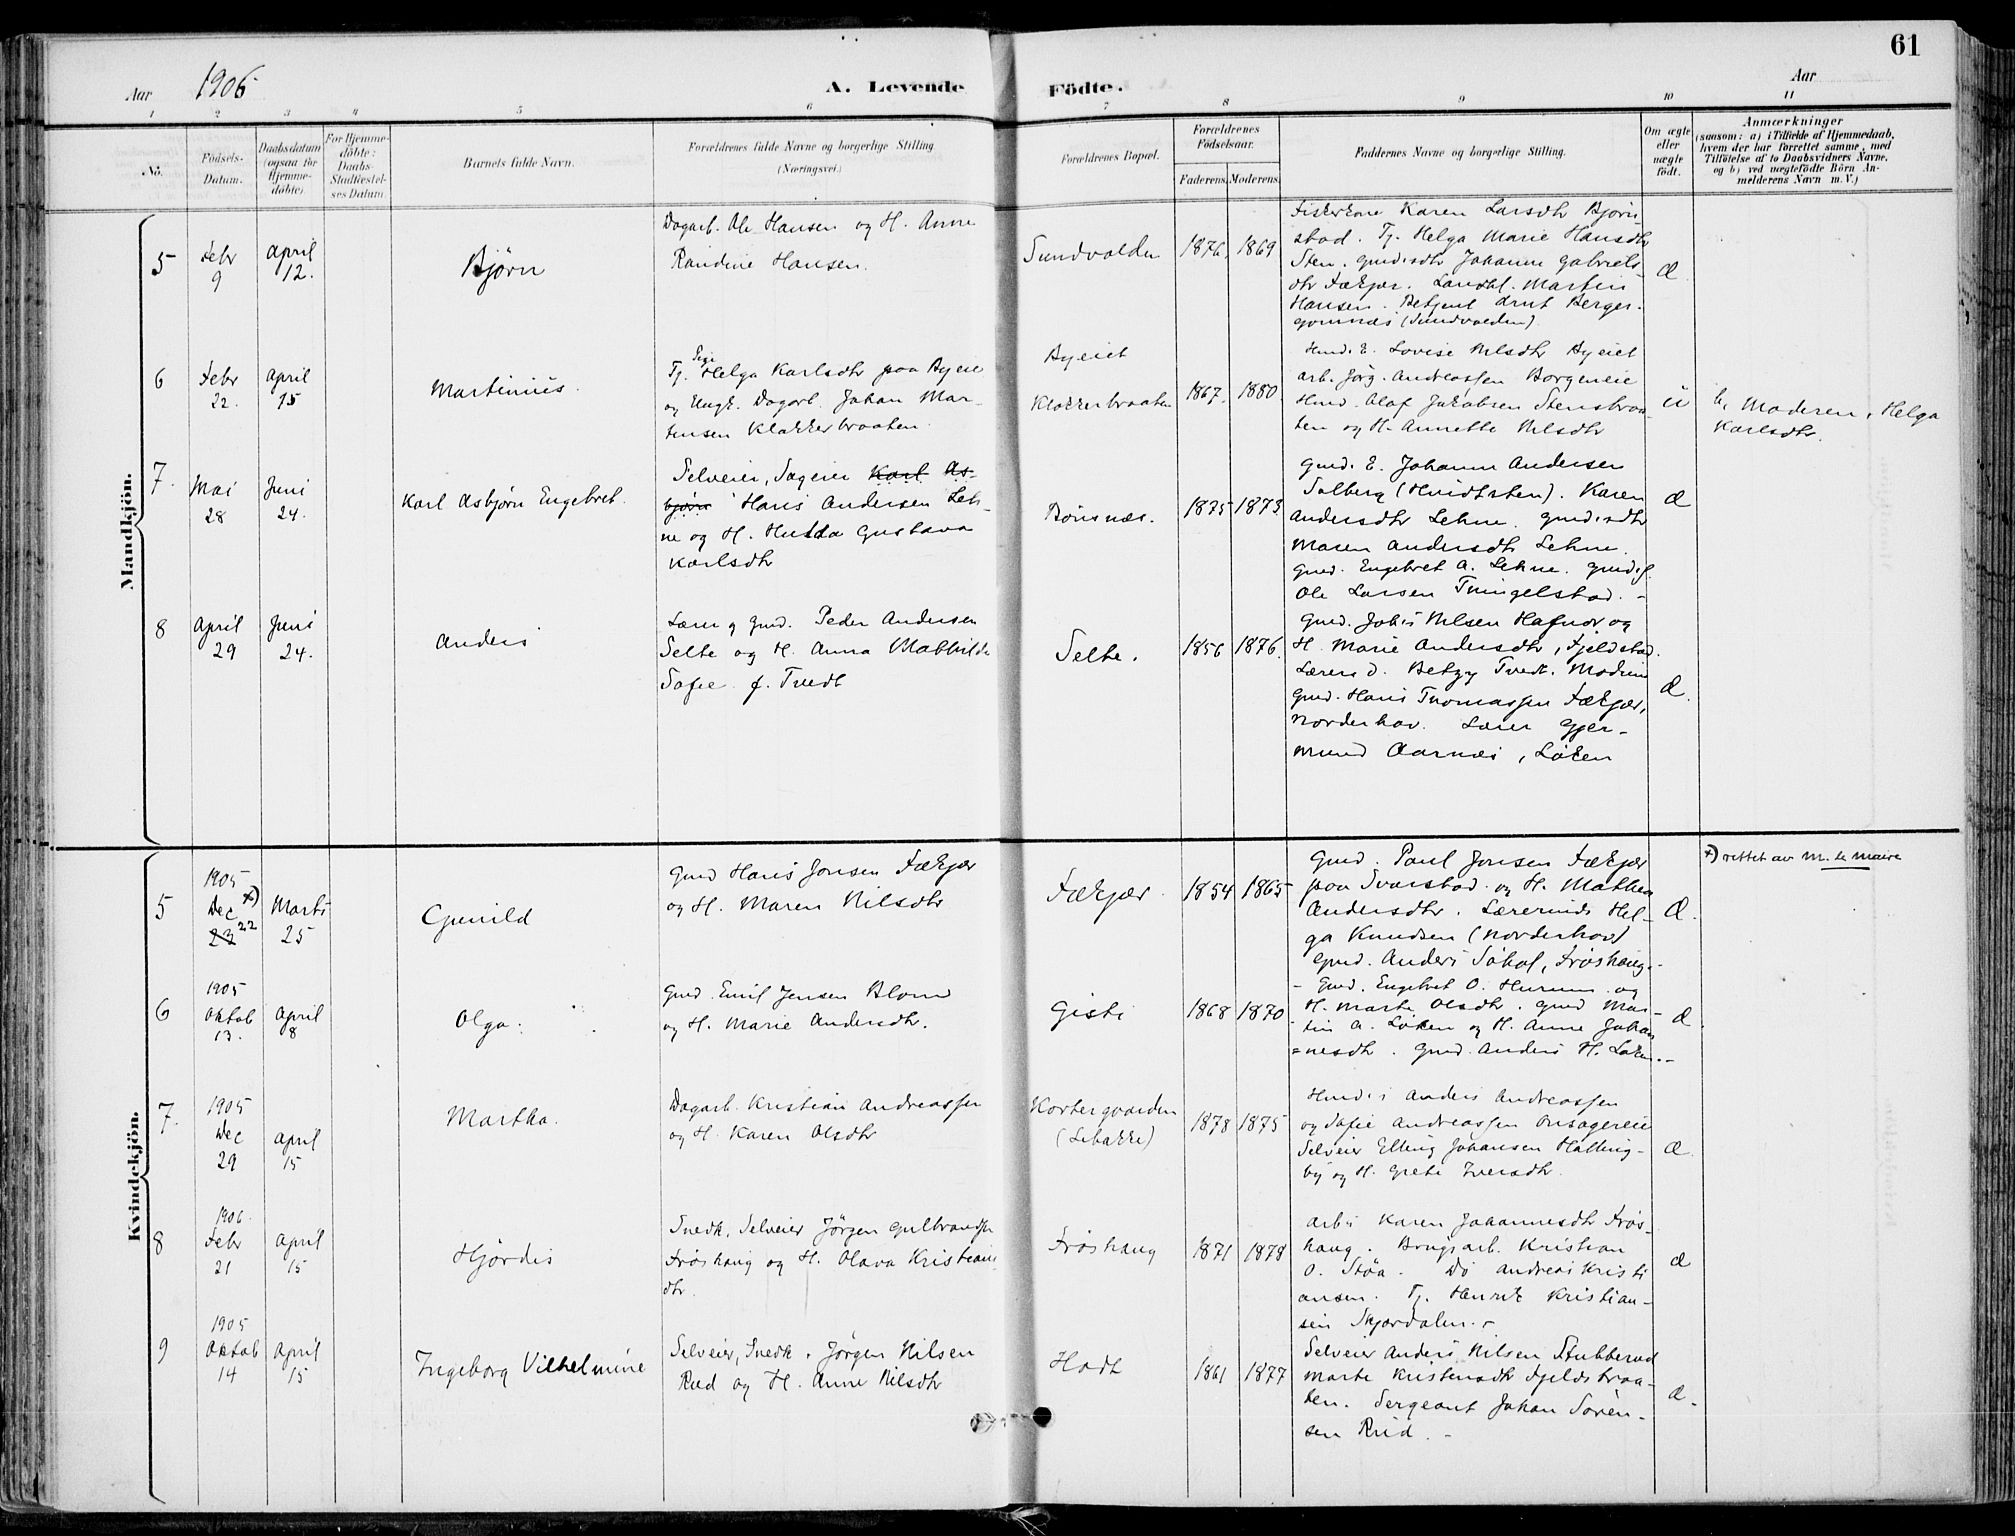 61
Aar 1906 A. Levende Födte. Aar
1 2 3 4 5 6 7 8 9 10 11
No.
Födsels-
Datum.
Daabsdatum
(ogsaa for
Hjemme-
döbte).
For Hjemme-
döbte:
Daabs
Stadfæstel-
ses Datum.
Barnets fulde Navn.
Forældrenes fulde Navne og borgerlige Stilling
(Næringsvei.)
Forældrenes Bopæl.
Forældrenes
Födselsaar.
Faderens. Moderens.
Faddernes Navne og borgerlige Stilling.
Om ægte
eller
uægte
födt.
Anmærkninger
(saasom: a) i Tilfælde af Hjemmedaab,
hvem der har forrettet samme, med
Tilföielse af to Daabsvidners Navne,
og b) ved uægtefödte Börn An-
melderens Navn m. V.)
Mandkjön.
5
Febr
9
April
12.
Bjørn
Dagarb. Ole Hansen og H. Anne
Randine Hansen.
Sundvolden
1876. 1869
Fiskerkone Karen Larsdtr Bjørn-
stad. Tj. Helga Marie Hansdtr
Sten. Gmdisdtr Johanne Gabriels-
dtr Fækjær. Landhl. Martin
Hansen. Betjent Arnt Berger.
Gomnæs (Sundvolden)
Æ
6
Febr
22.
April
15
Martinius.
Pige
Tj. Helga Karlsdtr paa Byeie
og Ungk. Dagarb. Johan Mar-
tinsen Klokkerbraaten.
Byeiet
Klokkerbraaten
1867. 1880
Husm. E. Lovise Nilsdtr Byeiet
Arb. Jørg. Andreassen Borgeneie
Husm. Olaf Jakobsen Stensbraa-
ten og H. Annette Nilsdtr
U
b, Moderen, Helga
Karlsdtr.
7.
Mai
28
Juni
24.
Karl Asbjørn Engebret.
Selveier, Sageier Karl As-
bjørn Hans Andersen Leh-
ne og H. Hulda Gustava
Karlsdtr
Bönsnæs.
1875 1873.
Gmd. E. Johanne Andersen
Solberg (Hvidtsten). Karen
Andersdtr Lehne. Gmdisdtr
Maren Andersdtr Lehne.
Gmd. Engebret A. Lehne. Gmdis.
Ole Larsen Tingelstad. -
Æ
8
April
29
Juni
24.
Anders
Lærer og Gmd. Peder Andersen
Selte og H. Anna Mathilde
Sofie f. Tvedt
Selte.
1856 1876.
Gmd. Johs Nilsen Hafnor og
H. Marie Andersdtr, Fjeldstad.
Lærers d. Betzy Tvedt. Modum
Gmd. Hans Thomassen Fækjær,
Norderhov. Lærer Gjer-
mund Aarnæs, Løken
Æ.
Kvindekjön.
5
1905
Dec +)
23 22
Marts
25
Gunild
Gmd Hans Jonsen Fækjær
og H. Maren Nilsdtr
Fækjær.
1854 1865
Gmd. Paul Jonsen Fækjær
paa Svarstad og H. Mathea
Andersdtr. Lærerinde Hel-
ga Knudsen (Norderhov)
Gmd. Anders Søhol, Frøshaug.-
Æ.
+) rettet av M. le Maire
6
1905
Oktob
13.
April
8
Olga.
Gmd. Emil Jensen Blom
og H. Marie Andersdtr.
Gisti
1868 1870
- Gmd. Engebret O. Hurum og
H. Marte Olsdtr. Gmd Mar-
tin A. Løken og H. Anne Johan
=nesdtr. Gmd. Anders H. Løken.-
Æ
7.
1905
Dec
29
April
15
Martha.
Dagarb. Kristian Andreassen
og H. Karen Olsdtr
Kortergaarden
(Lebakke)
1878 1875
Husm. i Anders Andreassen
og Sofie Andreassen Onsagereie
Selveier Elling Johansen Halling-
by og H. Grete Iversdtr.
Æ.
8
1906
Febr
21
April
15
Hjørdis
Snedk, Selveier Jørgen Gulbrandsen
Frøshaug og H. Olava Kristians
dtr.
Frøshaug
1871 1878
Arb. Karen Johannesdtr Frøs-
haug. Brugsarb. Kristian
O. Støa. Do Andreas Kristi
ansen. Tj. Henrik Kristian-
sen Skjærdalen. -
Æ
9
1905
Oktob
14
April
15
Ingeborg Vilhelmine
Selveier, Snedk. Jørgen Nilsen
Rud og H. Anne Nilsdtr
Hodt
1861 1877
Selveier Anders Nilsen Stubberud
Marte Kristensdtr Fjeldbraa-
ten. Sergeant Johan Søren-
sen Rud. -
Æ.